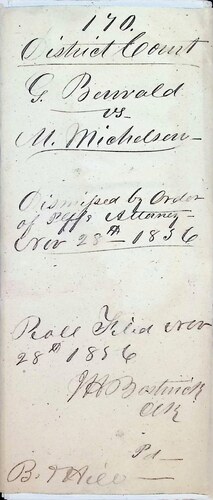 170.
District Court
G. Berwald
vs
M. Michelson
Dismissed by Order
of Plffs Attorney
Nov 28th 1856
Roll Filed Nov
28th 1856
J H Bostwick
Clk
Pd
B. & Hill